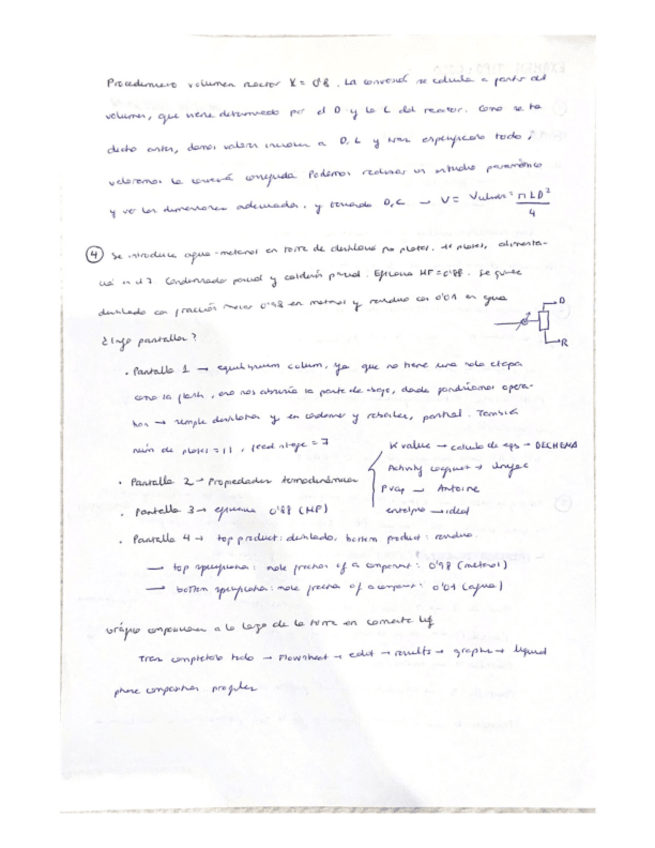 Procedimiento volumen reactor X = 0'8. La conversión se calcula a partir del
volumen, que viene determinado por el D y la L del reactor. Como se ha
dicho antes, damos valores a D, L y tras especificarlo todo,
veremos la conseguida. Podemos realizar un estudio paramétrico
y ver las dimensiones adecuadas, y teniendo D, L → V = = πLD²/4
④ Se introduce agua-metanol en torre de destilación por platos. 11 platos, alimenta-
ción en el 7. Condensador parcial y calderín parcial. Eficacia MF = 0'88. Se quiere
destilado con fracción molar 0'98 en metanol y residuo con 0'01 en agua
D
R
¿Info pantallas?
· Pantalla 1 → equilibrium column, ya que no tiene una sola etapa
como la flash, eso nos abriría la parte de abajo, donde pondríamos opera-
tion → simple distillation y en condenser y reboiler, partial. También
núm de platos = 11, feed stage = 7
· Pantalla 2 → Propiedades termodinámicas
K value → calculo de eqs → DECHEMA
Activity → Uniquac
Pvap → Antoine
entalpia → ideal
· Pantalla 3 → eficacia 0'88 (MF)
· Pantalla 4 → top product: destilado, bottom product: residuo.
→ top specification: mole fraction of a component: 0'98 (metanol)
→ bottom specification: mole fraction of a component: 0'01 (agua)
Gráfico composicion a lo largo de la torre en corriente liq
Tras completarlo todo → Flowsheet → edit → results → graphs → liquid
phase composition profiles